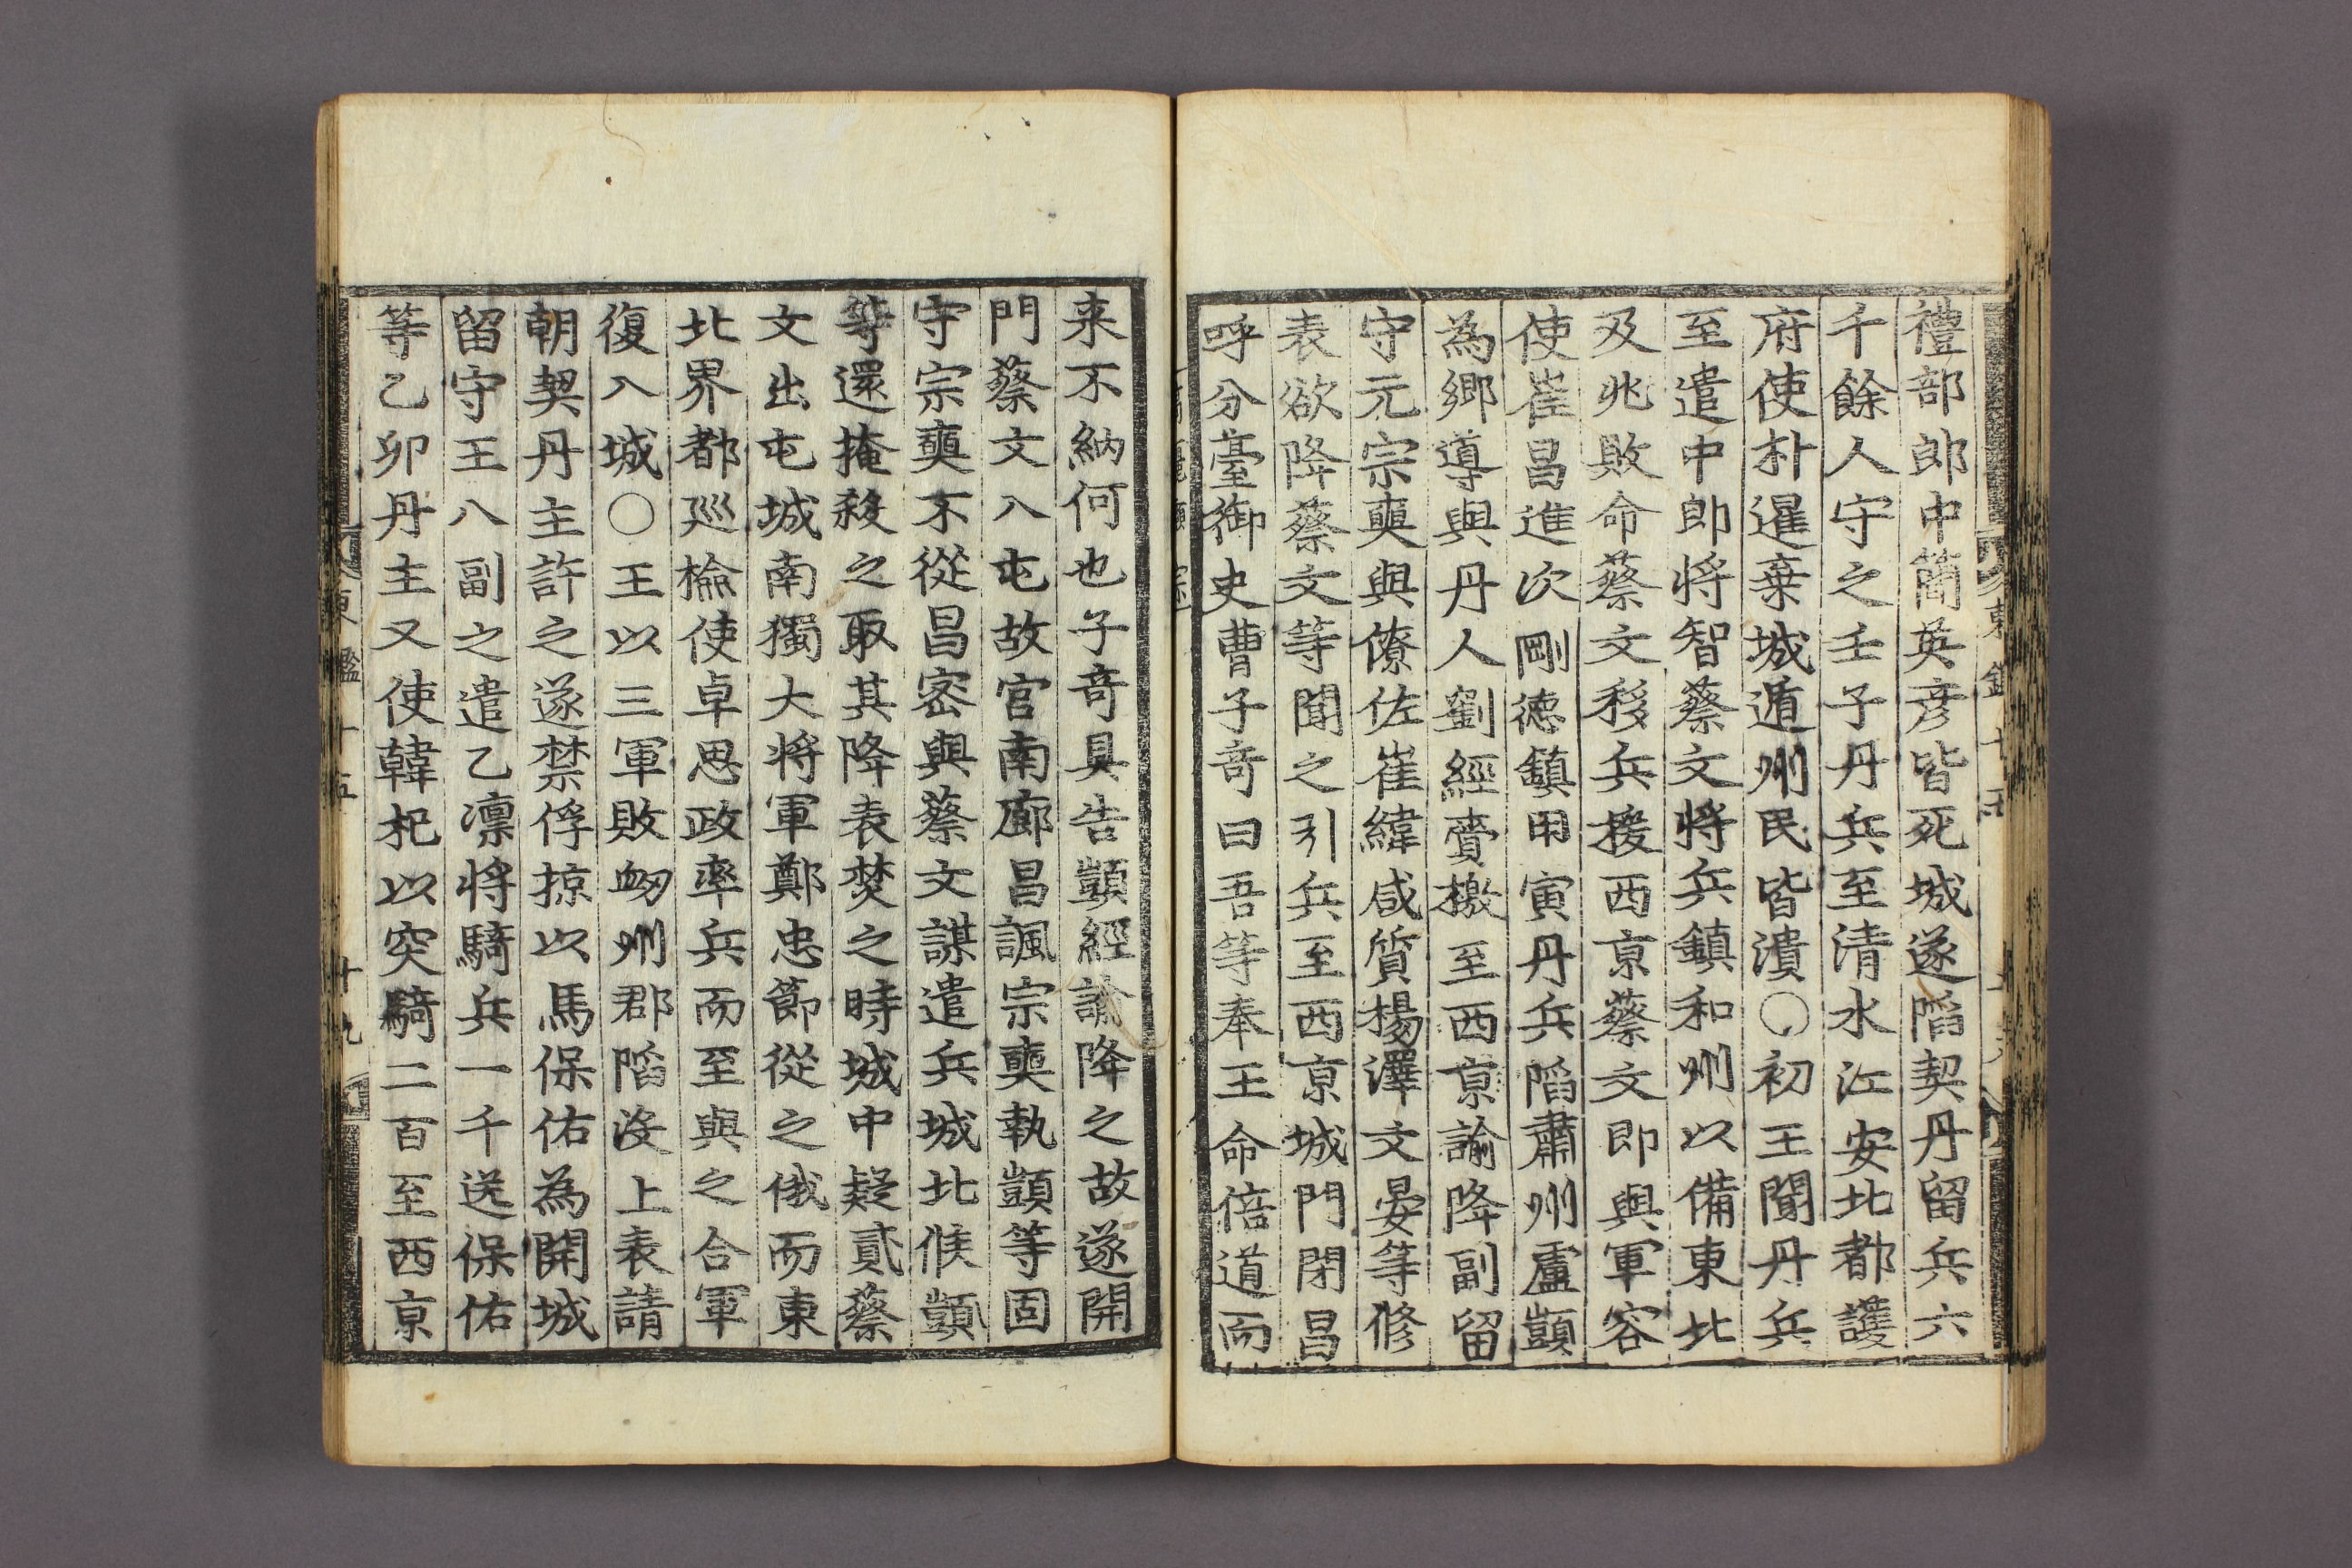 禮部郎中簡英彦皆死城遂陷契丹留兵六
千餘人守之壬子丹兵至清水江安北都護
府使朴暹棄城遁州民皆潰○初王聞丹兵
至遣中郎將智蔡文將兵鎮和州以備東北
及兆敗命蔡文移兵援西京蔡文即與軍容
使崔昌進次剛德鎮甲寅丹兵陷肅州盧顗
為鄉導與丹人劉經賫檄至西京諭降副留
守元宗奭與僚佐崔緯咸質楊澤文晏等修
表欲降蔡文等聞之引兵至西京城門閉昌
呼分臺御史曹子奇曰吾等奉王命倍道而
来不納何也子奇具告顗經諭降之故遂開
門蔡文入屯故宮南廊昌諷宗奭執顗等固
守宗奭不從昌密與蔡文謀遣兵城北候顗
等還掩殺之取其降表焚之時城中疑貳蔡
文出屯城南獨大將軍鄭忠節從之俄而東
北界都巡檢使卓思政率兵而至與之合軍
復入城○王以三軍敗衂州郡陷沒上表請
朝契丹主許之遂禁俘掠以馬保佑為開城
留守王八副之遣乙凜將騎兵一千送保佑
等乙卯丹主又使韓杞以突騎二百至西京